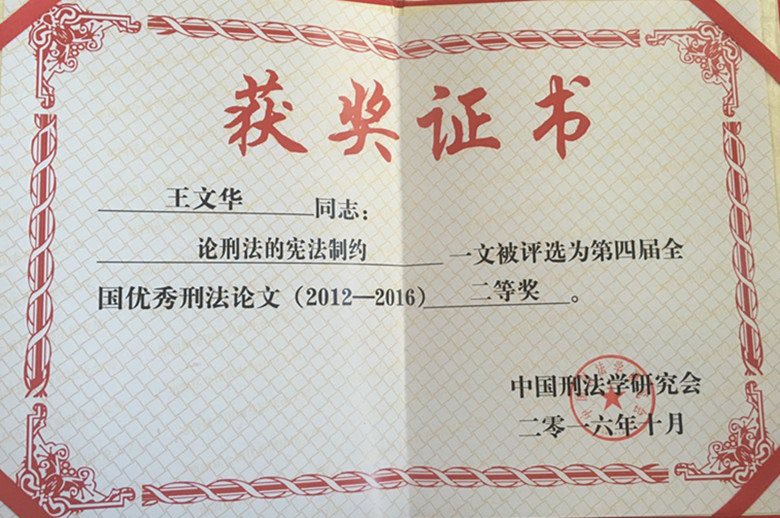 获奖证书
王文华 同志：
论刑法的宪法制约 一文被评选为第四届全
国优秀刑法论文（2012—2016） 二等奖 。
中国刑法学研究会
二零一六年十月